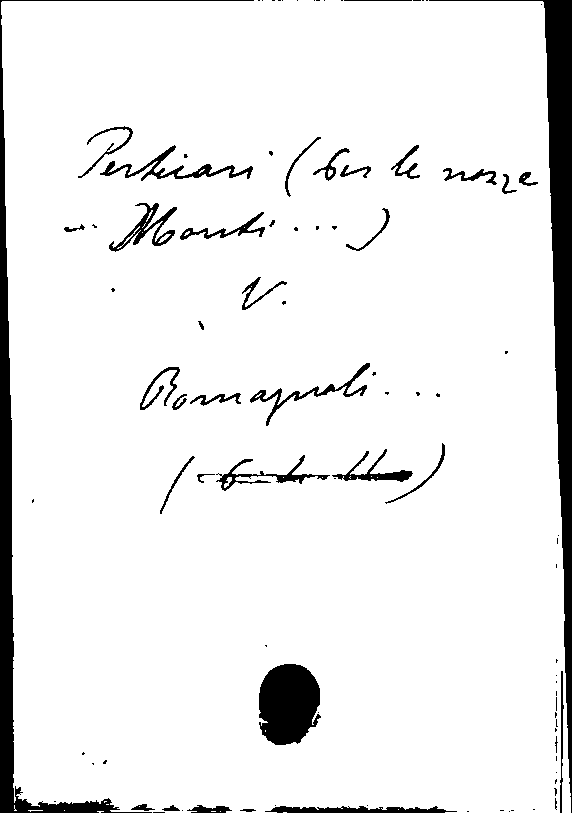 Perticari (Per le nozze
... Monti ...)
V.
Romagnoli ...
( )